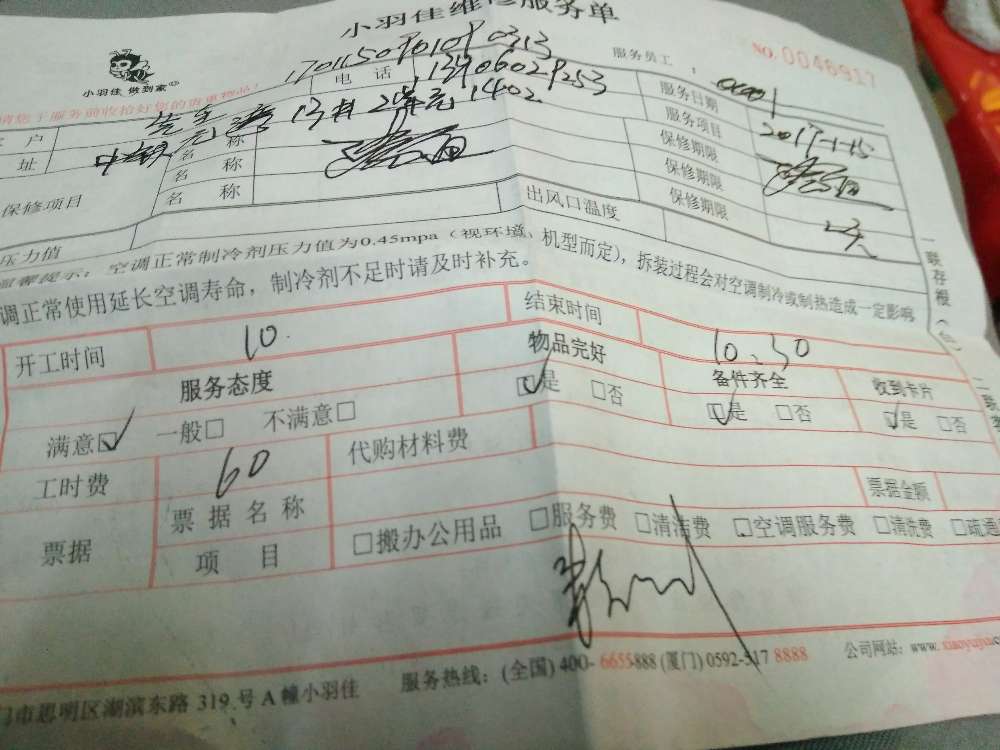 小羽佳维修服务单
小羽佳 做到家
NO.0046917
服务员工:
170115090109 0313
请您于服务前收拾好您的贵重物品!
户
电话
13906029253
服务日期
2017-1-15
址
1402
服务项目
保修项目
名称
名称
名称
保修期限
保修期限
保修期限
压力值
出风口温度
温馨提示:空调正常制冷剂压力值为0.45mpa(视环境、机型而定),拆装过程会对空调制冷或制热造成一定影响
调正常使用延长空调寿命,制冷剂不足时请及时补充。
一联存根(白)
二联
开工时间
10
结束时间
10.30
服务态度
物品完好
备件齐全
收到卡片
满意☑ 一般□ 不满意□
☑是 □否
☑是 □否
☑是 □否
工时费
60
代购材料费
票据
票据名称
票据金额
项目
□搬办公用品 □服务费 □清洁费 □空调服务费 □清洗费 □疏通
门市思明区湖滨东路 319号A幢小羽佳
服务热线:(全国) 400-6655888 (厦门) 0592-517 8888
公司网站:www.xiaoyujia.c